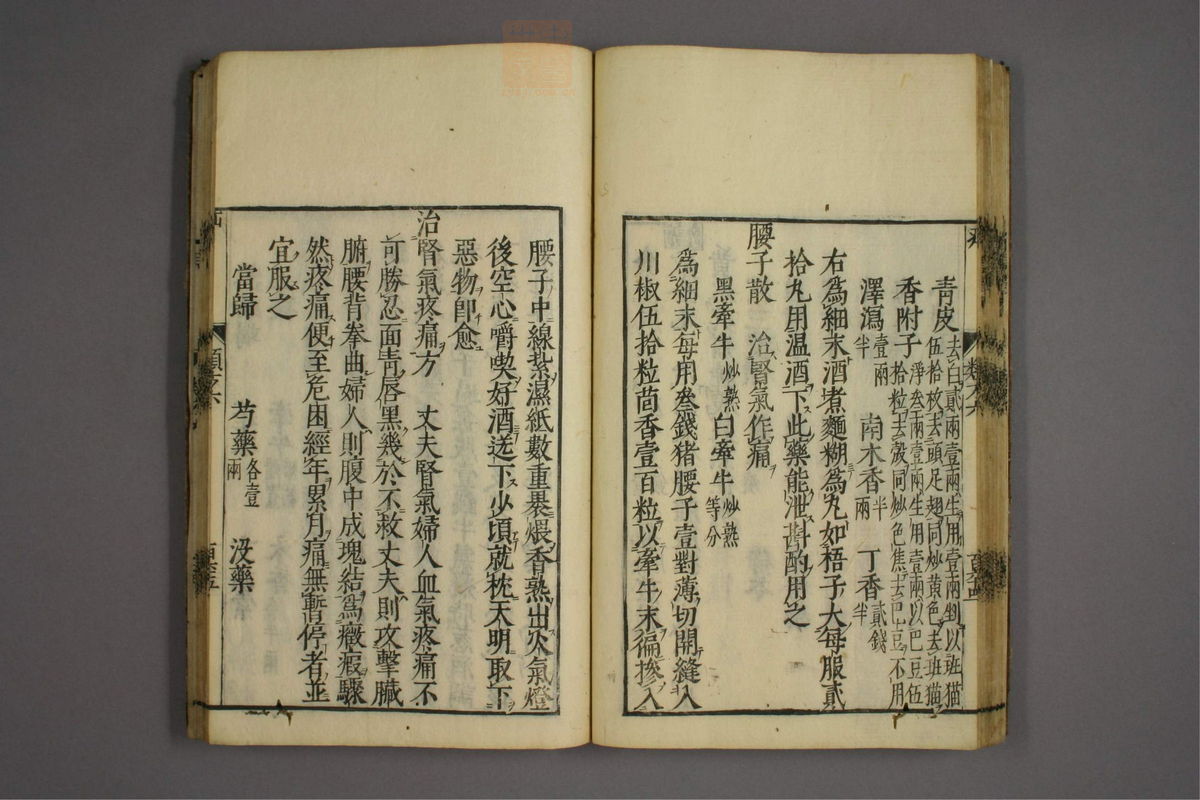 青皮去白貳兩壹兩生用壹兩剉以班猫伍拾枚去頭足翅同炒黄色去班猫
香附子淨叁兩壹兩生用壹兩以巴豆伍拾粒去殼同炒色焦去巴豆不用
澤瀉壹兩半 南木香半兩 丁香貳錢半
右爲細末酒煮麵糊爲丸如梧子大每服貳
拾丸用温酒下此藥能泄斟酌用之
腰子散 治腎氣作痛
黑牽牛炒熟 白牽牛炒熟等分
爲細末每用叁錢猪腰子壹對薄切開縫入
川椒伍拾粒茴香壹百粒以牽牛末徧摻入
腰子中線紮濕紙數重褁煨香熟出火氣燈
後空心嚼喫好酒送下少頃就枕天明取下
惡物卽愈
治腎氣疼痛方 丈夫腎氣婦人血氣疼痛不
可勝忍面靑唇黑幾於不救丈夫則攻擊臟
腑腰背拳曲婦人則腹中成塊結爲癥瘕驟
然疼痛便至危困經年累月痛無暫停者並
宜服之
當歸 芍藥各壹兩 没藥